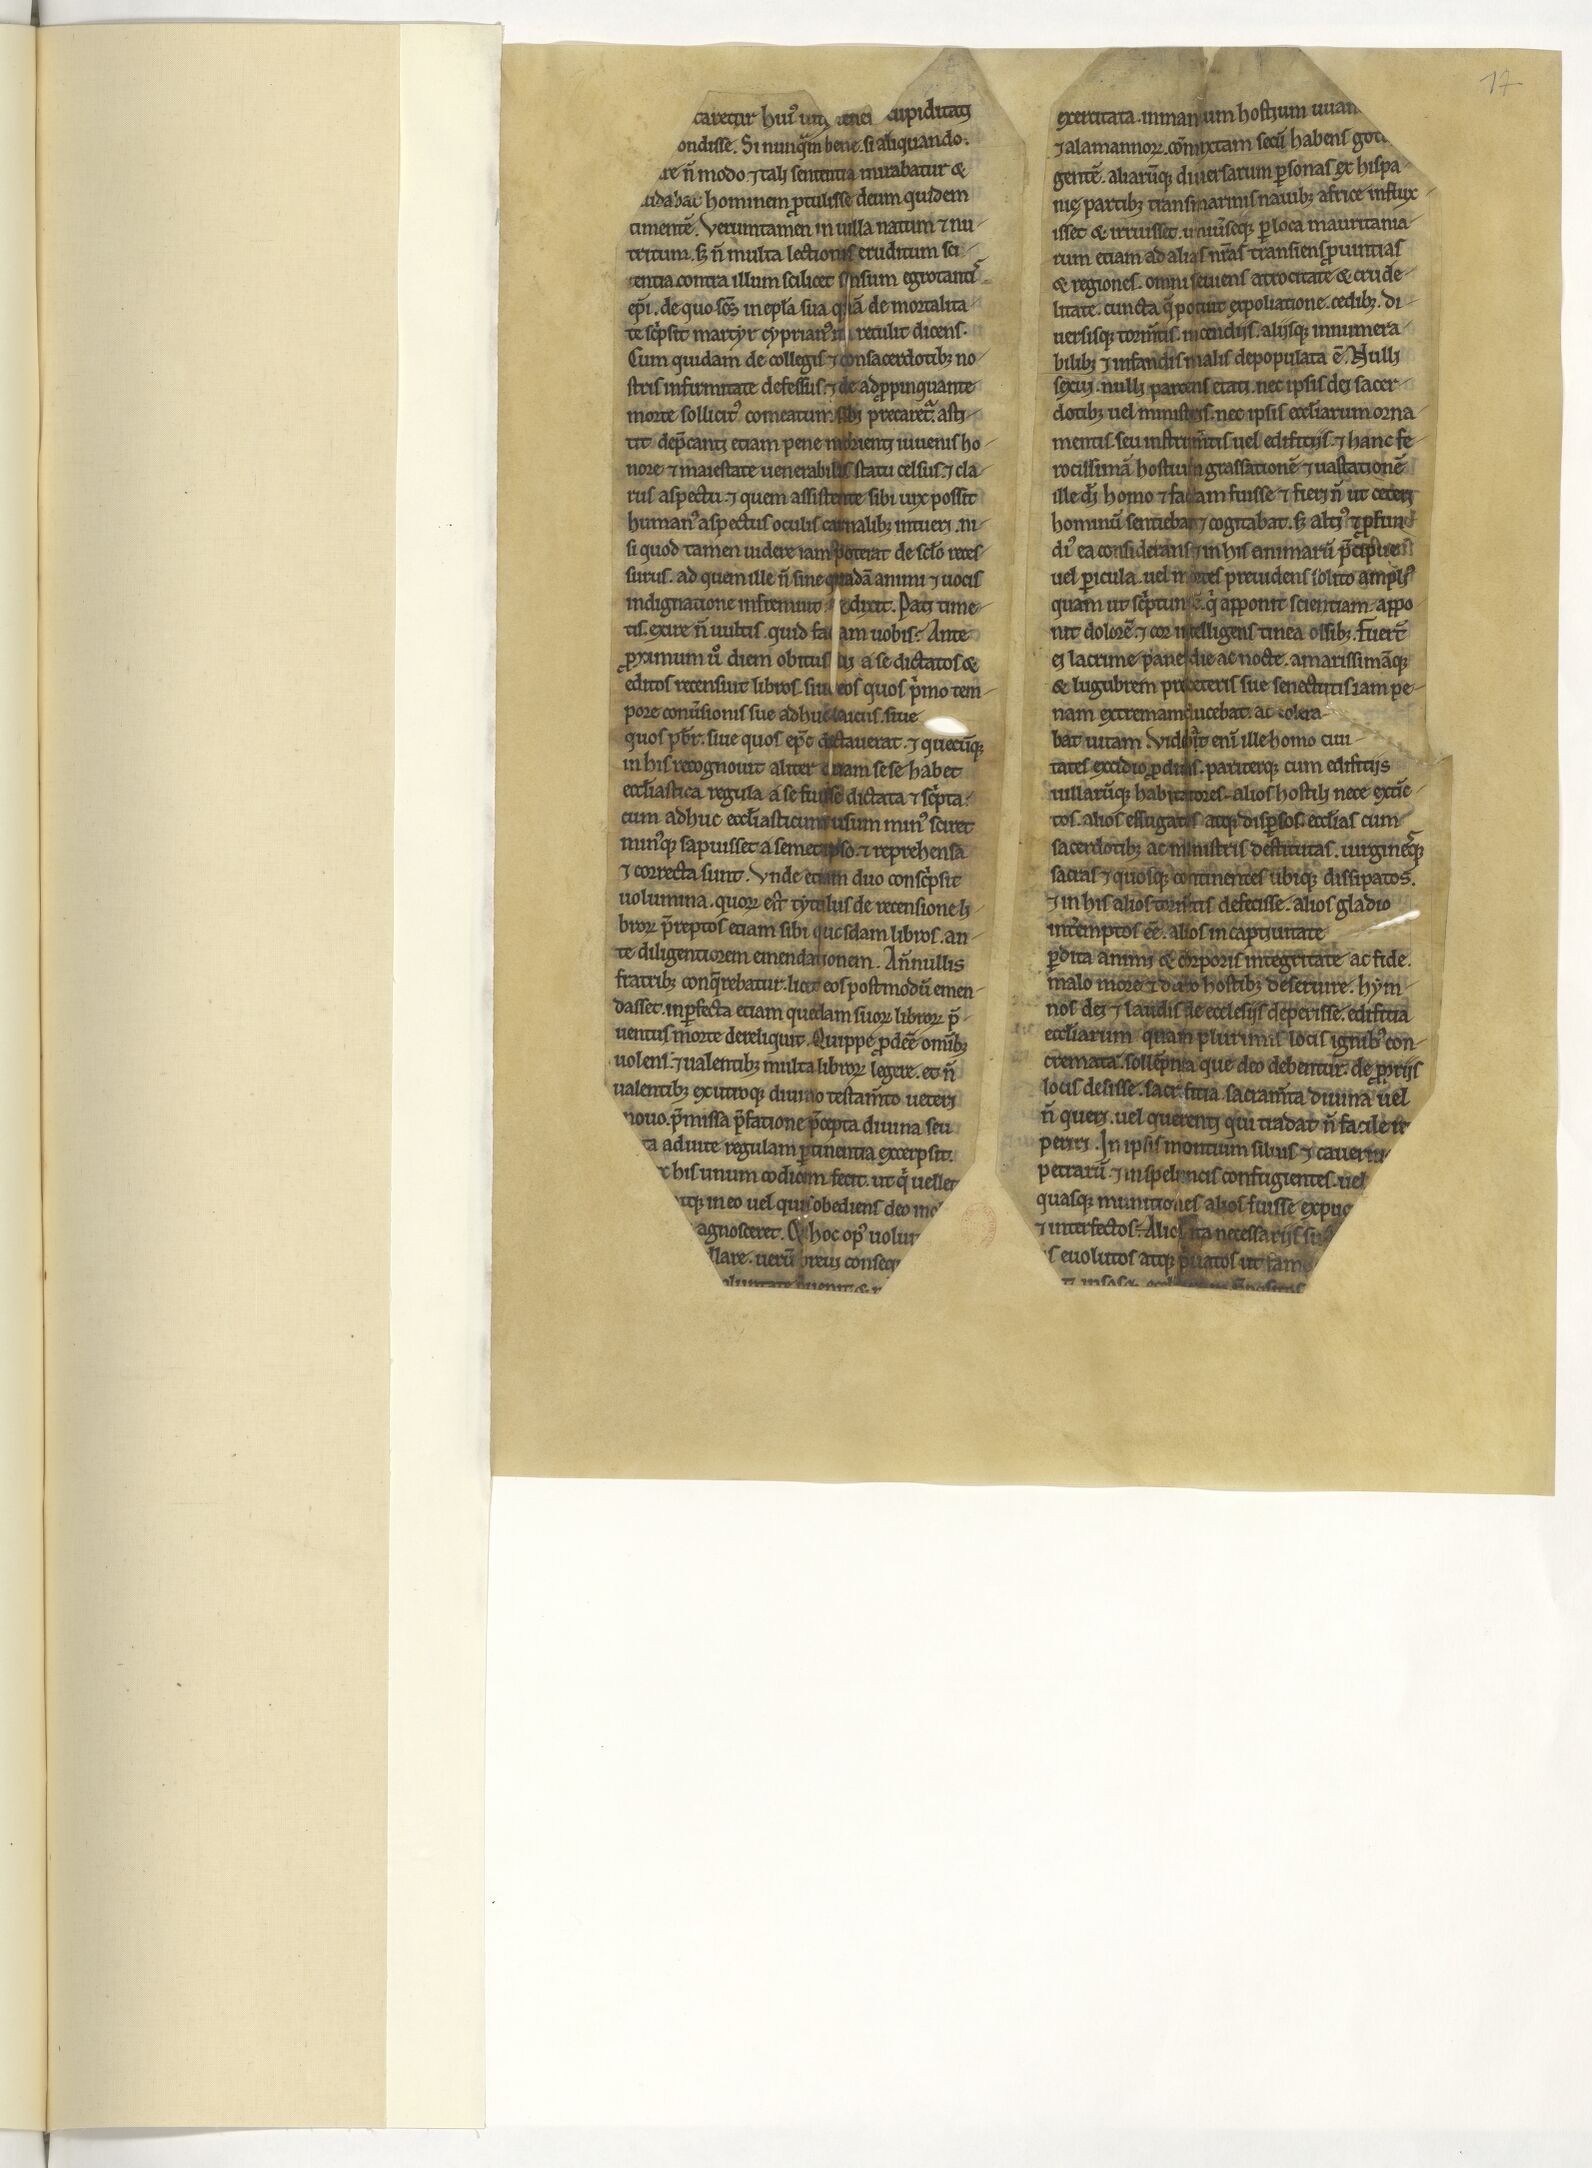 17
caretur huiꝰ uitę cupiditatꝭ
ondisse. Si nunꝗ̄m bene. si aliquando.
re n̄ modo ⁊ talj sententia mirabatur &
udabat hominem ꝓtulisse deum quidem
timentē. Verumtamen in uilla natum ⁊ nu-
tritum. sꝫ n̄ multa lectionis eruditum sci-
entia. contra illum scilicet sensum egrotantꝭ
ep̄i. de quo sc̄s in epl̄a sua quā de mortalita-
te sc̓psit martyr cyprianꝰ ita retulit dicens.
Cum quidam de collegis ⁊ consacerdotibꝫ no-
stris infirmitate defessus. ⁊ de adp̱pinquante
morte sollicitꝰ comeatum sibj precaret᷑. asti-
tit dep̄cantj etiam pene morientj iuuenis ho-
nore ⁊ maiestate uenerabilis statu celsus. ⁊ cla-
rus aspectu. ⁊ quem assistente sibi uix possit
humanꝰ aspectus oculis carnalibꝫ intueri. ni-
si quod tamen uidere iam poterat de scl̄o reces-
surus. ad quem ille n̄ sine quadā animi ⁊ uocis
indignatione infremuit. & dixit. Pati time-
tis. exire n̄ uultis. quid faciam uobis. Ante
ꝓximum u̓ diem obitus sui a se dictatos &
editos recensuit libros. siue eos quos p̓mo tem-
pore conuͥsionis sue adhuc laicus. siue
quos pb̄r. siue quos ep̄c dictauerat. ⁊ quecūqꝫ
in his recognouit aliter quam sese habet
ecc̄liastica regula a se fuisse dictata ⁊ sc̓pta.
cum adhuc ecc̄liasticum usum minꝰ sciret
minꝰqꝫ sapuisset a semetipso. ⁊ reprehensa
⁊ correcta sunt. Vnde etiam duo consc̓psit
uolumina. quoꝝ est tytulus de recensione li-
broꝝ p̄reptos etiam sibi quosdam libros. an-
te diligentiorem emendationem. A n̄nullis
fratribꝫ conq̓rebatur. licet eos postmodū emen-
dasset. inꝑfecta etiam quedam suoꝝ libroꝝ p̄-
uentus morte dereliquit. Quippe ꝓdeē om̄ibꝫ
uolens. ⁊ ualentibꝫ multa libroꝝ legere. et n̄
ualentibꝫ ex utroqꝫ diuino testam̄to ueterj
nouo. p̄missa p̄fatione p̄cepta diuina seu
ta ad uite regulam ꝑtinentia excerpsit.
x his unum codicem fecit. ut q̓ uellet
in eo uel quis obediens deo
agnosceret. & hoc opꝰ uolu
llare. uerū breuj conseq
oluntate
exercitata. inmanium hostium
⁊ alamannoꝝ. cōmixtam secū habens got
gentē. aliarūqꝫ diuersarum ꝑsonas ex hispa-
nię partibꝫ transmarinis nauibꝫ africe influx-
isset & irruisset. uniuͥseqꝫ ꝑ loca mauritania-
rum etiam ad alias nr̄as transiens ꝓuintias
& regiones. omni seuiens atrocitate & crude-
litate. cuncta q̄ potuit expoliatione. cedibꝫ. di-
uersisqꝫ torm̄tis. incendijs. alijsqꝫ innumera-
bilibꝫ ⁊ infandis malis depopulata ē. Nullj
sexuj. nullj parcens etati. nec ipsis dei sacer-
dotibꝫ uel ministris. nec ipsis ecc̄liarum orna-
mentis. seu instrum̄tis uel edifitijs. ⁊ hanc fe-
rocissimā hostium grassationē ⁊ uastationē
ille dj̄ homo ⁊ factam fuisse ⁊ fieri n̄ ut ceterj
hominū sentiebat ⁊ cogitabat. sꝫ altiꝰ & ꝓfun-
diꝰ ea considerans ⁊ in his animarū p̄cipue
uel ꝑicula. uel mortes preuidens solito ampliꝰ
quam ut sc̓ptum ē. q̓ apponit scientiam. appo-
nit dolorē. ⁊ cor intelligens tinea ossibꝫ. Fuer̄t
ej lacrime panes die ac nocte. amarissimāqꝫ
& lugubrem pre ceteris sue senectutis iam pe-
nam extremam ducebat. ac tolera-
bat uitam. Videbat eni᷑ ille homo ciui-
tates excidio ꝑditas. pariterqꝫ cum edifitijs
uillarūqꝫ habitatores. alios hostilj nece extīc-
tos. alios effugatos atqꝫ disꝑsos. ecc̄lias cum
sacerdotibꝫ ac ministris destitutas. uirginesqꝫ
sacras ⁊ quosqꝫ continentes ubiqꝫ dissipatos.
⁊ in his alios torm̄tis defecisse. alios gladio
int̓emptos eē. alios in captiuitate
ꝑdita animj & corporis integritate ac fide.
malo more ⁊ duro hostibꝫ deseruire. hym-
nos dej ⁊ laudes de ecclesijs deperisse. edifitia
ecc̄liarum quam plurimis locis ignibꝰ con-
cremata. sollēpnia que deo debentur. de ꝓprijs
locis desisse. sacrifitia. sacram̄ta diuina uel
n̄ querj. uel querentj qui tradat n̄ facile re-
periri. In ipsis montium siluis ⁊ cauernis
petrarū. ⁊ in speluncis confugientes. uel
quasqꝫ munitiones alios fuisse expug
⁊ interfectos. Alios ita necessarijs su
is euolutos atqꝫ p̓uatos ut fame